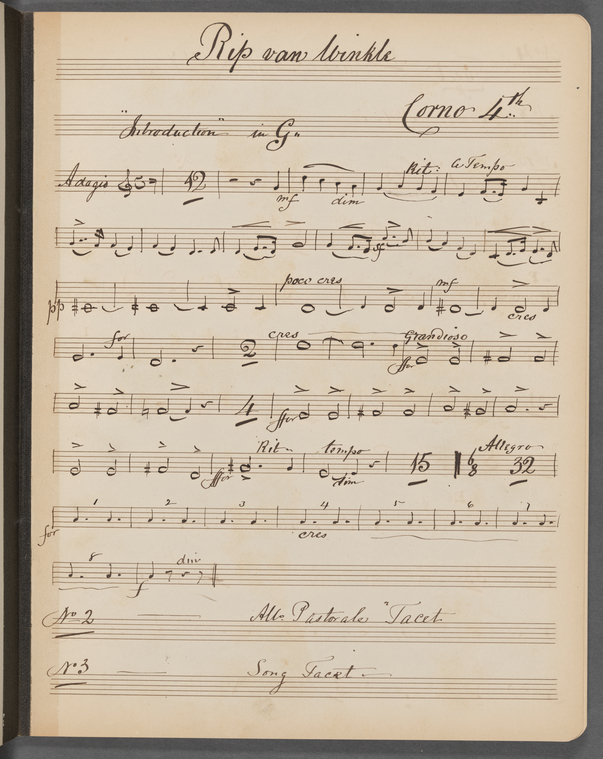 Rip van Winkle
Corno 4th
"Introduction" in G
Adagio 42 mf dim Rit: a Tempo
sf
pp poco cres mf cres
for 2 cres Grandioso ffor
4 ffor
ffor Rit tempo dim 15 6 8 Allegro 32
for 1 2 3 4 cres 5 6 7
8 f dim
No 2 Allo Pastorale "Tacet
No 3 Song Tacet